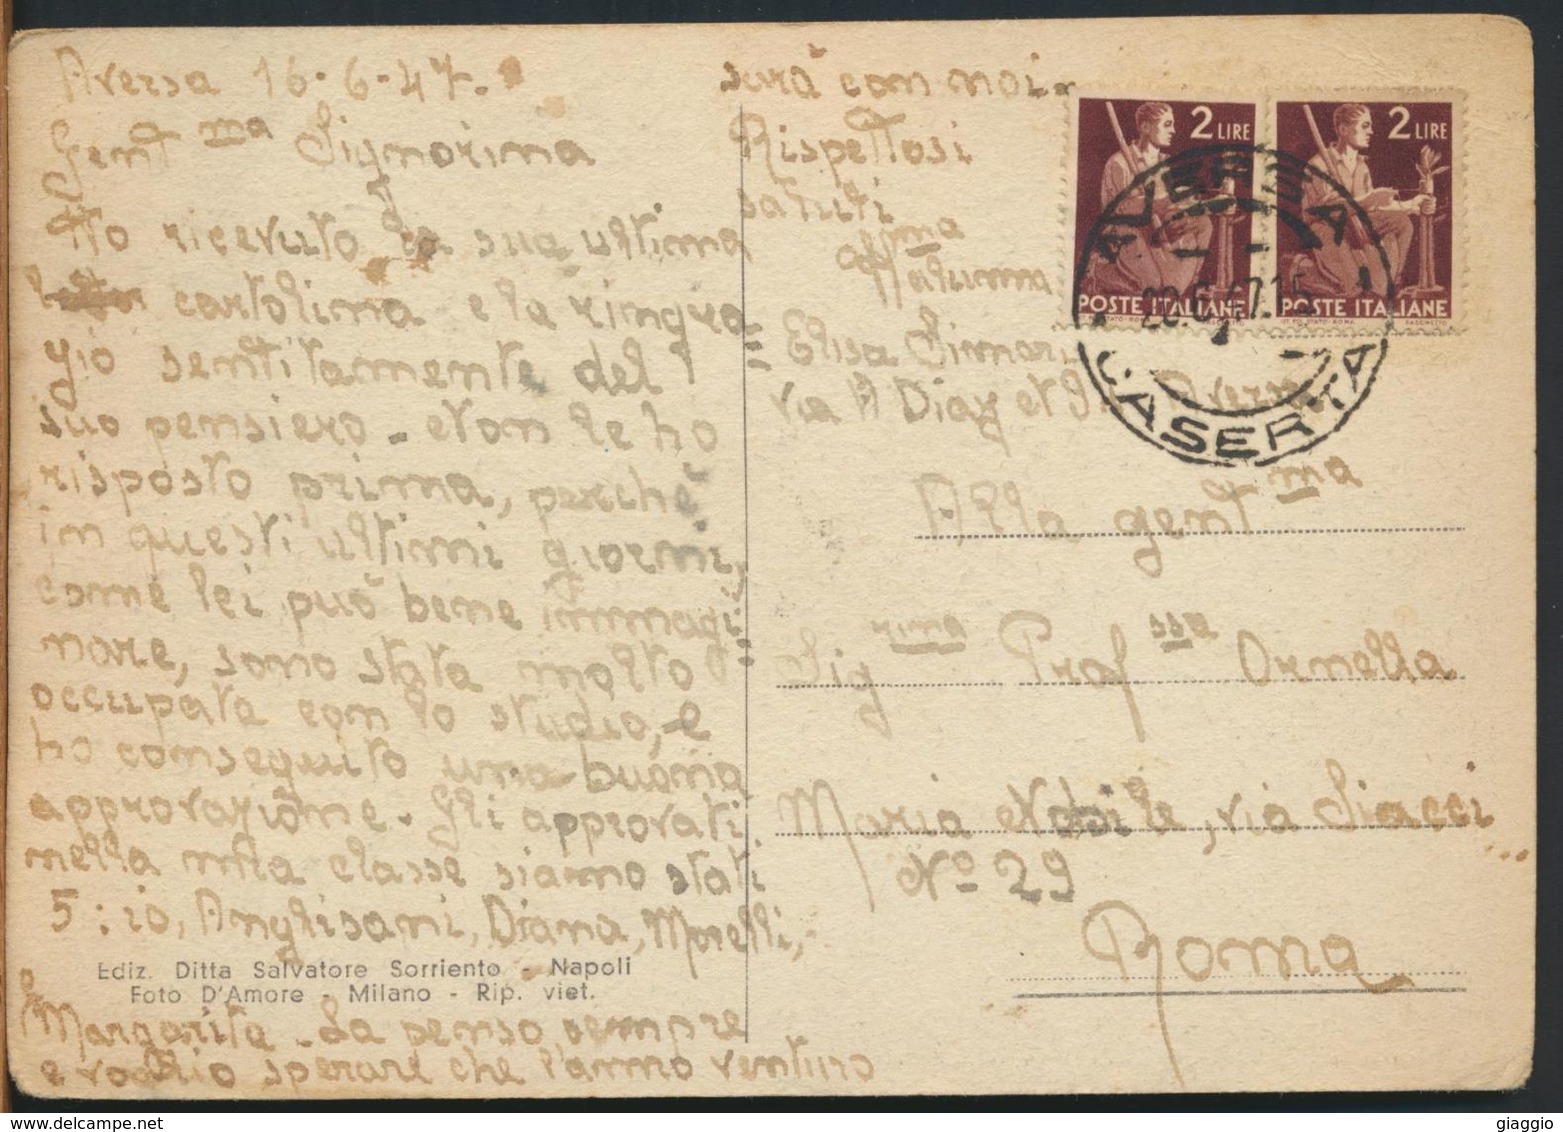 Aversa 16-6-47.
Gent ma Signorina
Ho ricevuto la sua ultima
cartolina e la ringra
zio sentitamente del
suo pensiero. Non le ho
risposto prima, perchè
in questi ultimi giorni,
come lei può bene immagi
nare, sono stata molto
occupata con lo studio, e
ho conseguito una buona
approvazione. Gli approvati
nella mia classe siamo stati
5: io, Anglisani, Diana, Morelli,
Margarita. La penso sempre
e voglio sperare che l'anno venturo
sarà con noi.
Rispettosi
saluti
Alunna
Elisa
via A Diaz N 9 Aversa
2 LIRE
POSTE ITALIANE
2 LIRE
POSTE ITALIANE
AVERSA
CASERTA
Alla gent ma
Sig rina Prof ssa Ornella
Maria Nobile, via Siacci
No 29
Roma
Ediz. Ditta Salvatore Sorriento - Napoli
Foto D'Amore - Milano - Rip. viet.
giaggio
delcampe.net